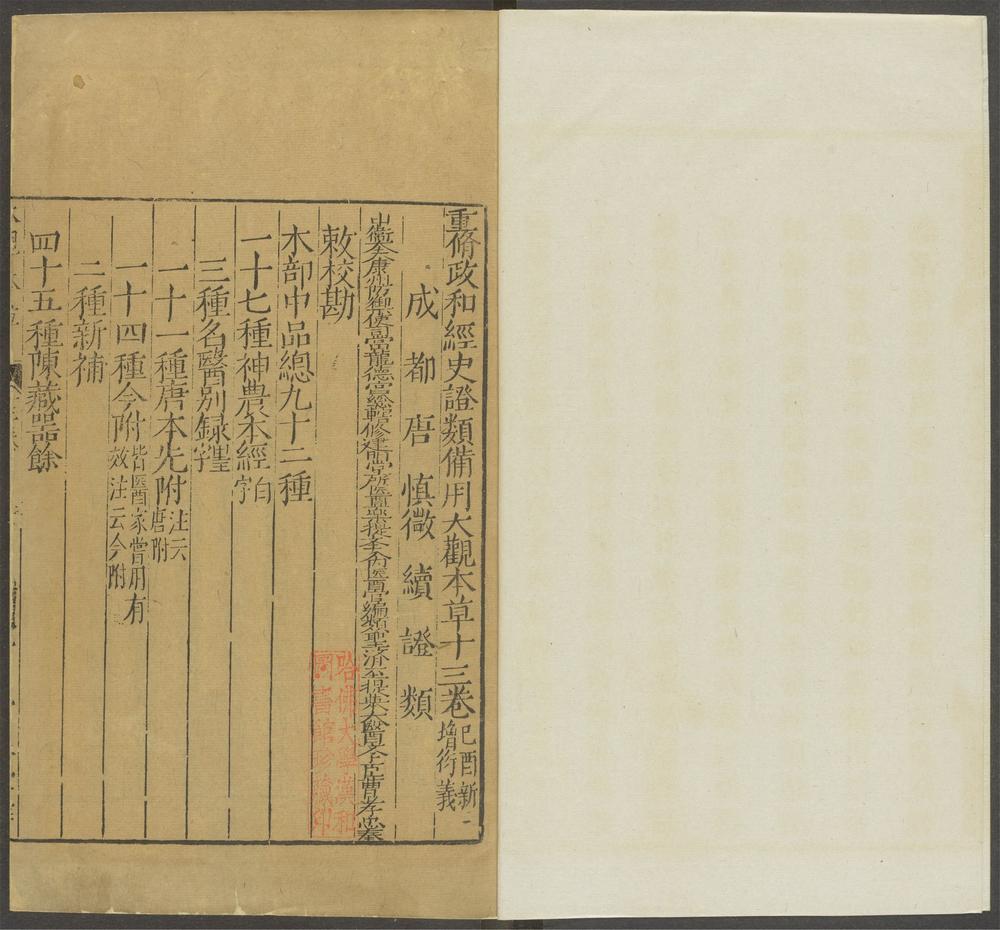 重脩政和經史證類備用大觀本草十三卷己酉新增衍義
成都唐慎微續證類
中衛大夫康州防禦使句當龍德宮總轄修建明堂所醫藥提舉入內醫官編類聖濟經提舉太醫學臣曹孝忠奉
敕校勘
木部中品總九十二種
一十七種神農本經白字
三種名醫別録墨字
一十一種唐本先附注云唐附
一十四種今附皆醫家嘗用有效注云今附
二種新補
四十五種陳藏器餘
哈佛大學漢和
圖書館珍藏印